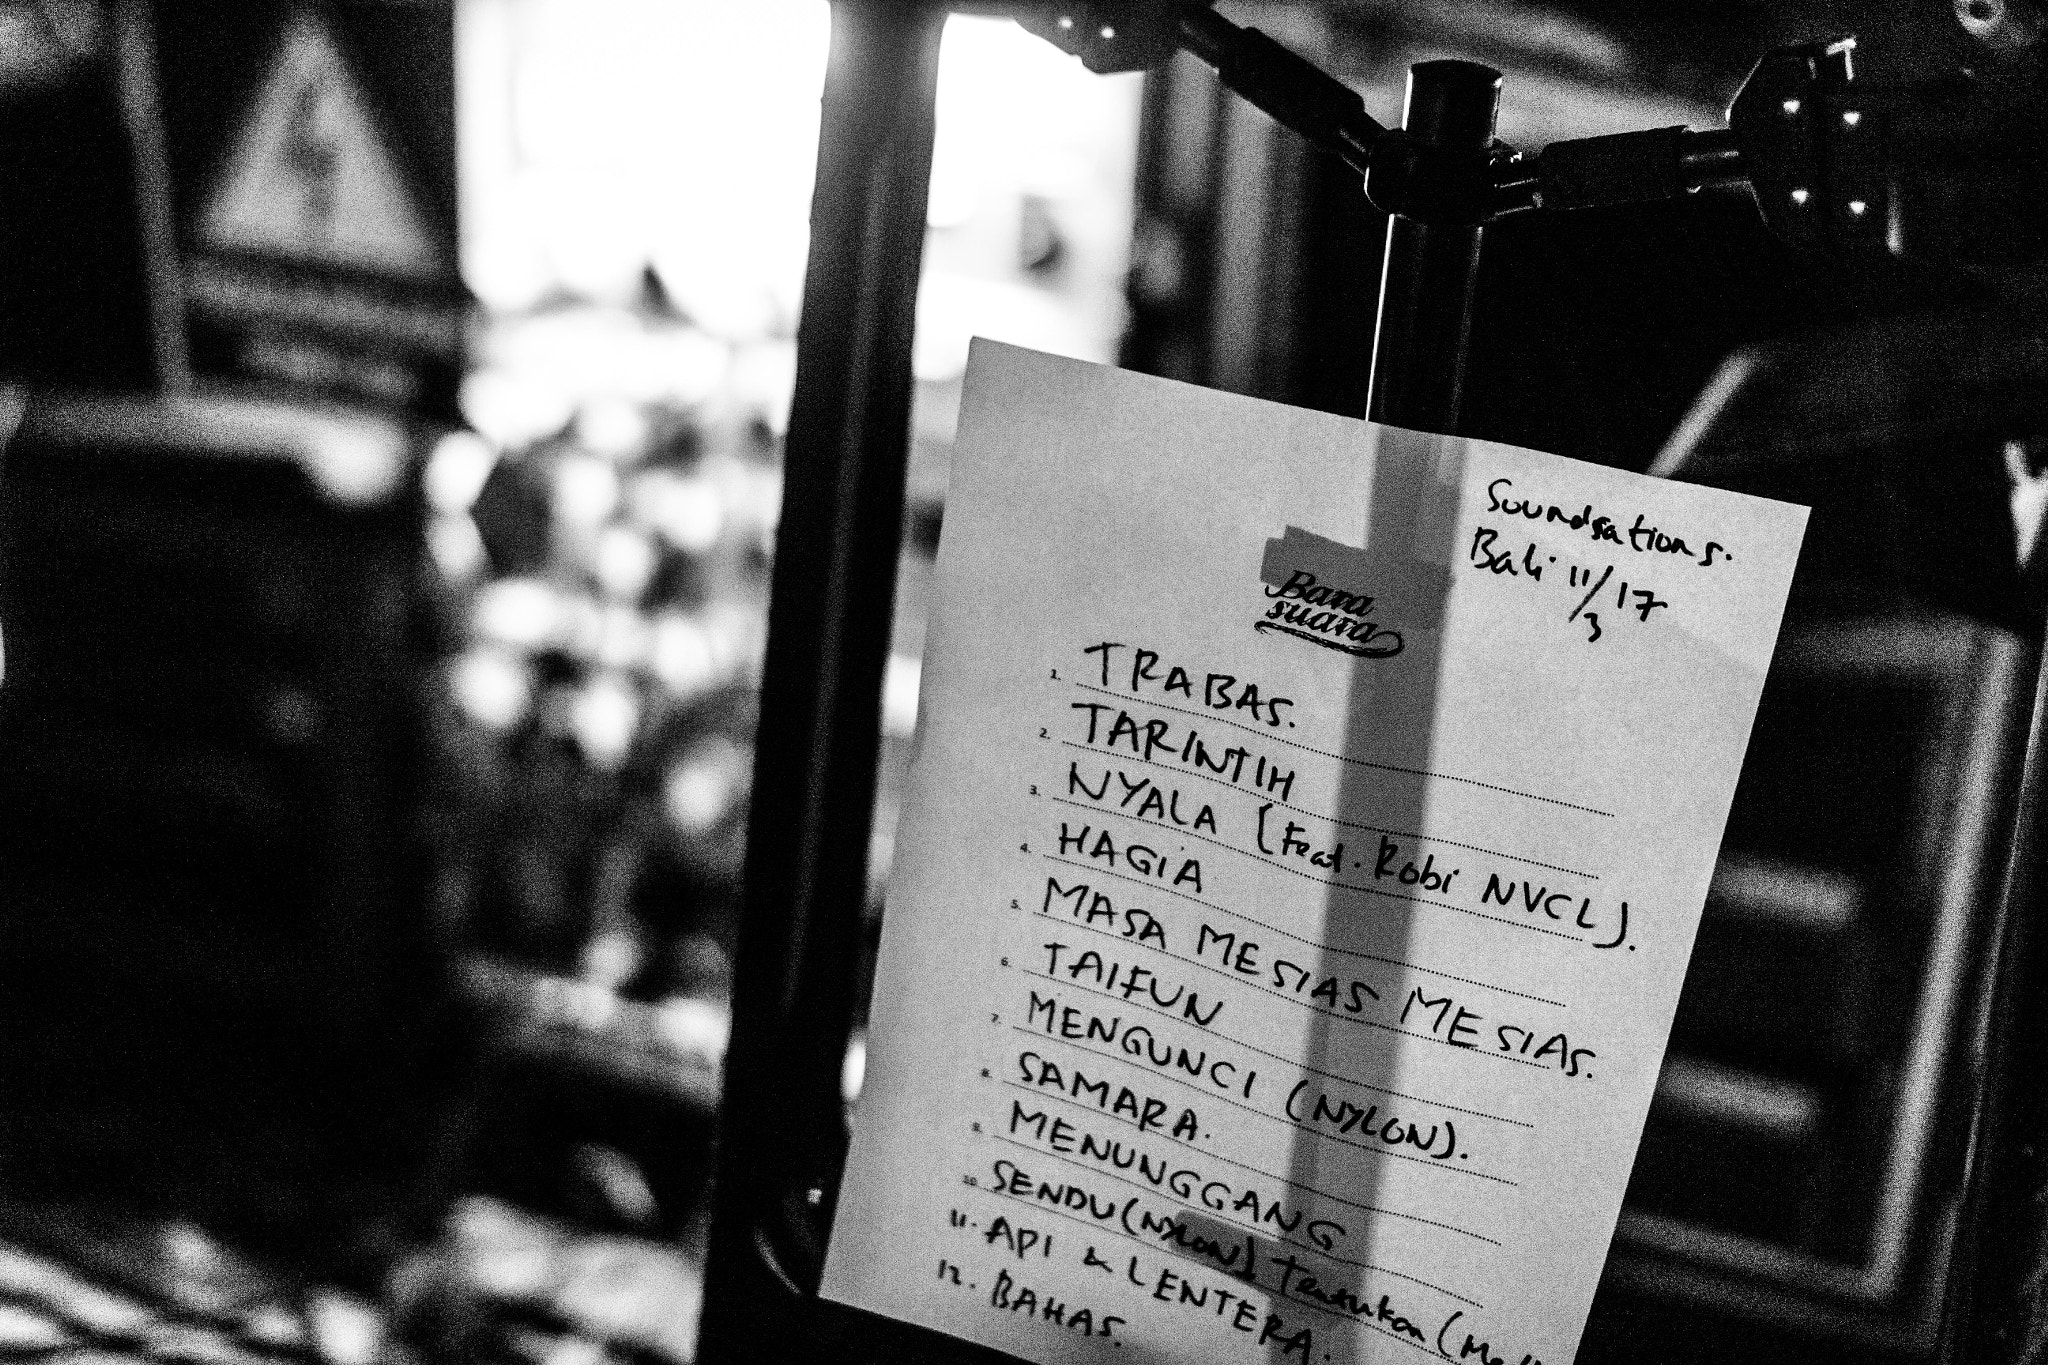 Soundsations.
Bali 11/17
3
Bara
suara
1. TRABAS.
2. TARINTIH
3. NYALA (Feat. Robi NVCL).
4. HAGIA
5. MASA MESIAS MESIAS.
6. TAIFUN
7. MENGUNCI (NYLON).
8. SAMARA.
9. MENUNGGANG
10. SENDU (NYLON) Tentukan (
11. API & LENTERA.
12. BAHAS.